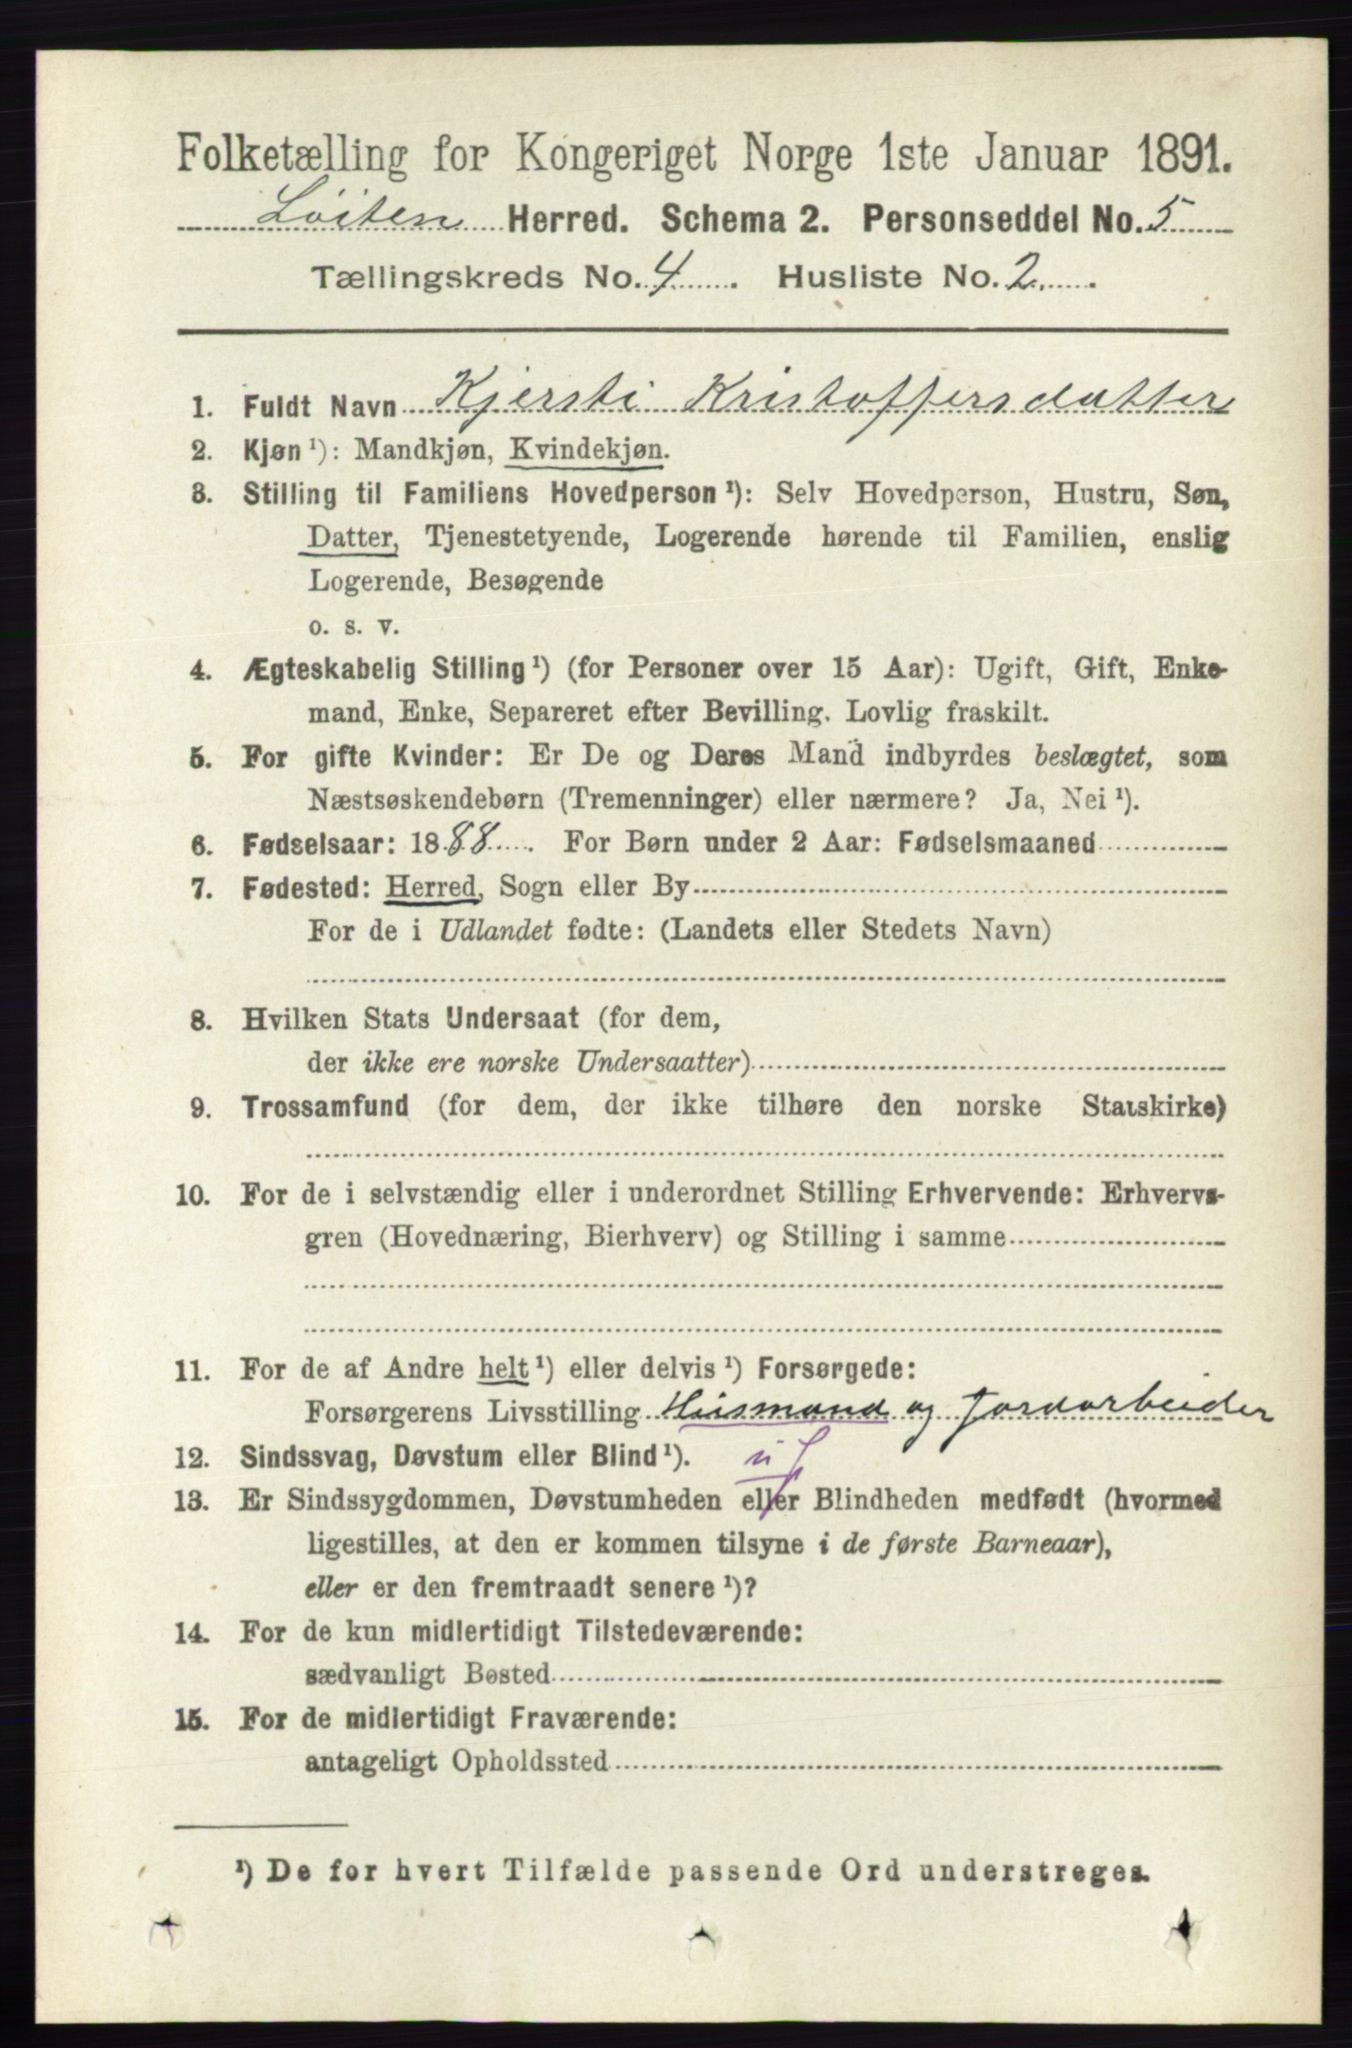 Folketælling for Kongeriget Norge 1ste Januar 1891.
Löiten Herred. Schema 2. Personseddel No. 5
Tællingskreds No. 4. Husliste No. 2.
1. Fuldt Navn Kjersti Kristoffersdatter
2. Kjøn ¹): Mandkjøn, Kvindekjøn.
3. Stilling til Familiens Hovedperson ¹): Selv Hovedperson, Hustru, Søn,
Datter, Tjenestetyende, Logerende hørende til Familien, enslig
Logerende, Besøgende
o. s. v.
4. Ægteskabelig Stilling ¹) (for Personer over 15 Aar): Ugift, Gift, Enke-
mand, Enke, Separeret efter Bevilling. Lovlig fraskilt.
5. For gifte Kvinder: Er De og Deres Mand indbyrdes beslægtet, som
Næstsøskendebørn (Tremenninger) eller nærmere? Ja, Nei ¹).
6. Fødselsaar: 1888. For Børn under 2 Aar: Fødselsmaaned
7. Fødested: Herred, Sogn eller By
For de i Udlandet fødte: (Landets eller Stedets Navn)
8. Hvilken Stats Undersaat (for dem,
der ikke ere norske Undersaatter)
9. Trossamfund (for dem, der ikke tilhøre den norske Statskirke)
10. For de i selvstændig eller i underordnet Stilling Erhvervende: Erhvervs-
gren (Hovednæring, Bierhverv) og Stilling i samme
11. For de af Andre helt ¹) eller delvis ¹) Forsørgede:
Forsørgerens Livsstilling Husmand og Jordarbeider
12. Sindssvag, Døvstum eller Blind ¹).
13. Er Sindssygdommen, Døvstumheden eller Blindheden medfødt (hvormed
ligestilles, at den er kommen tilsyne i de første Barneaar),
eller er den fremtraadt senere ¹)?
14. For de kun midlertidigt Tilstedeværende:
sædvanligt Bosted
15. For de midlertidigt Fraværende:
antageligt Opholdssted
¹) De for hvert Tilfælde passende Ord understreges.